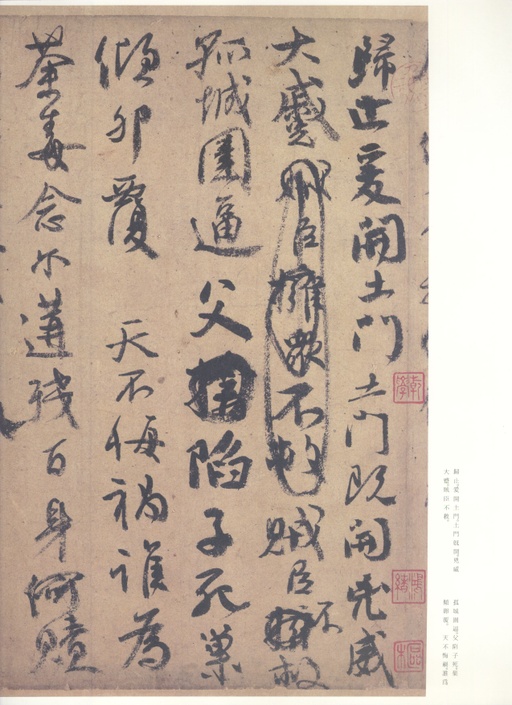 歸止爰開土門土門既開兇威
大蹙賊臣擁眾不救賊臣不擁救
孤城圍逼父擒陷子死巢
傾卵覆 天不悔禍誰為
荼毒念爾遘殘百身何贖
歸止。爰開土門。土門既開,兇威
大蹙。賊臣不救,
孤城圍逼,父陷子死,巢
傾卵覆。 天不悔禍,誰為